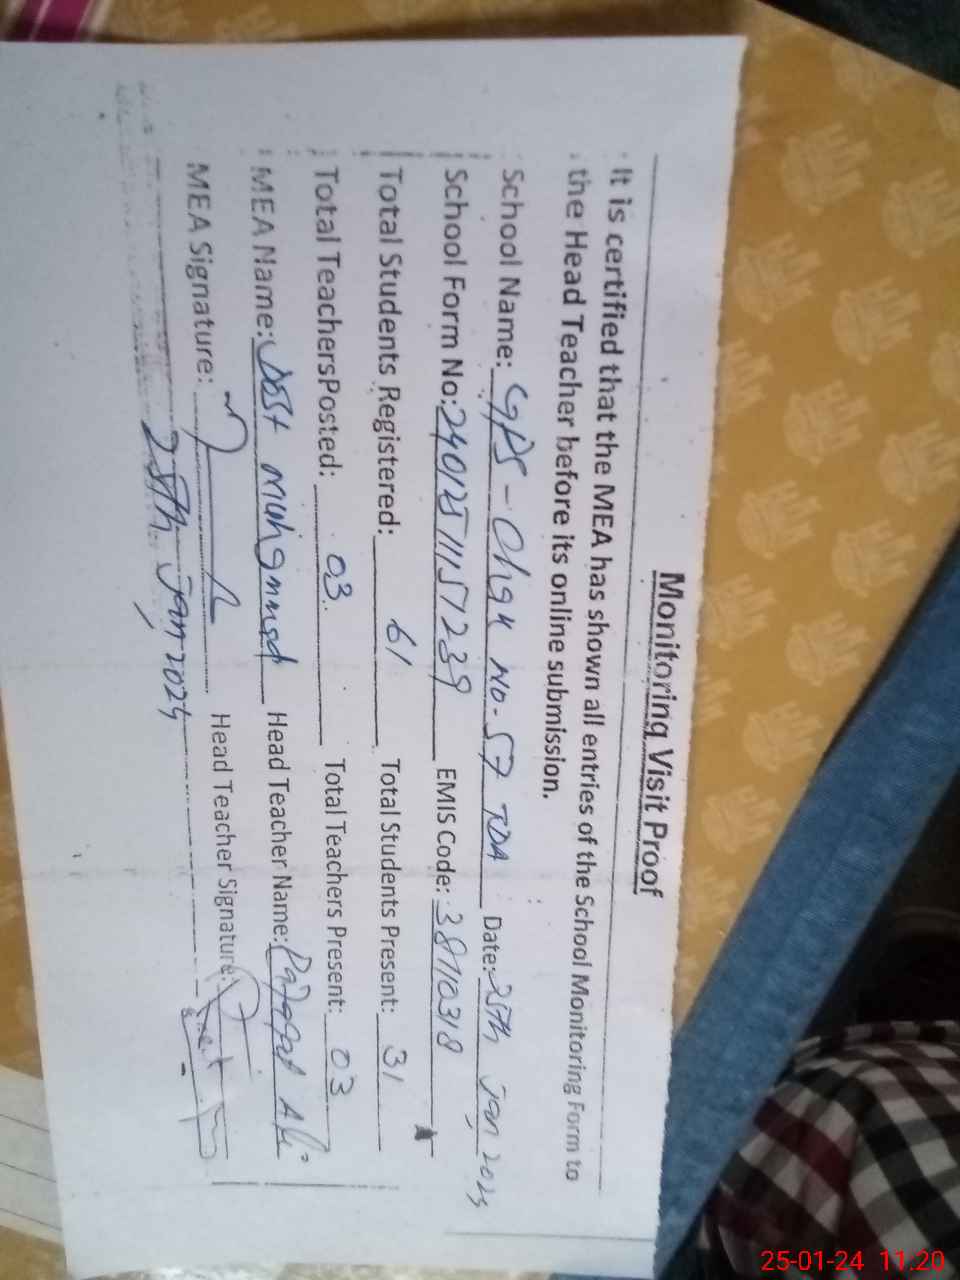 Monitoring Visit Proof
It is certified that the MEA has shown all entries of the School Monitoring Form to
the Head Teacher before its online submission.
School Name: GPS - Chak No - 57 TDA Date: 25th Jan 2024
School Form No: 24012511157239 EMIS Code: 38110318
Total Students Registered: 61 Total Students Present: 31
Total TeachersPosted: 03 Total Teachers Present: 03
MEA Name: Dost Muhammad Head Teacher Name: Ali
MEA Signature: Head Teacher Signature:
25th Jan 2024
25-01-24 11.20